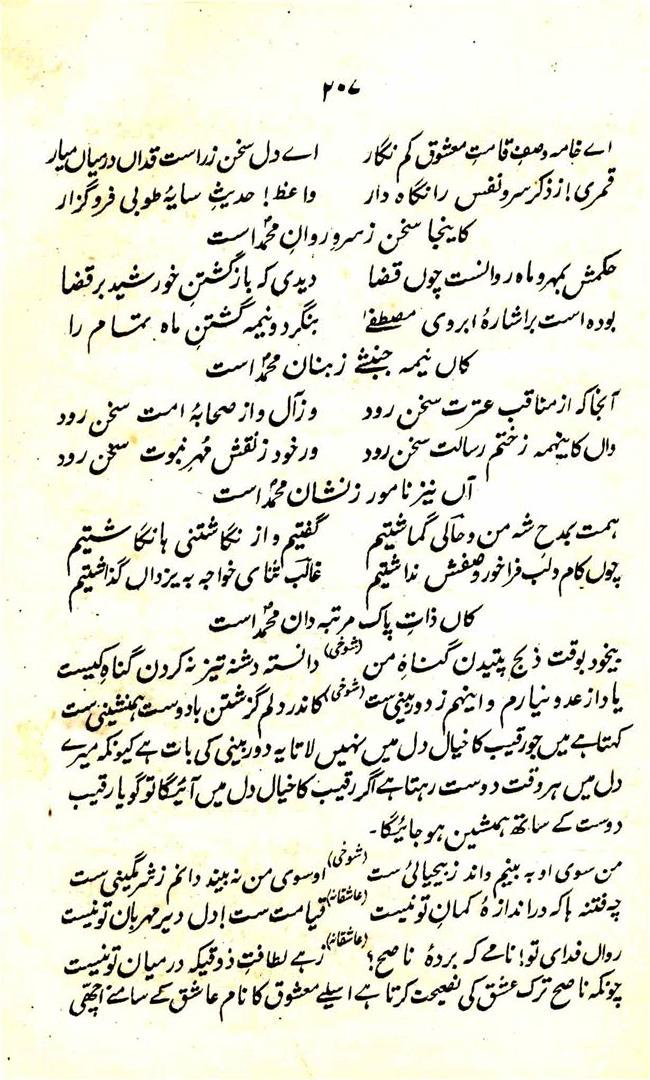 ۲۰۷
اے خامہ وصفِ قامتِ معشوق کم نگار اے دل سخن زراست قداں درمیاں میار
قمری! زذکرِ سرو نفس رانگاہ دار واعظ! حدیثِ سایۂ طوبی فروگزار
کاینجا سخن زسروِ روانِ محمدؐ است
حکمش بمہر و ماہ روانست چوں قضا دیدی کہ بازگشتنِ خورشید بر قضا
بودہ است بر اشارۂ ابروی مصطفےٰ بنگر دو نیمہ گشتنِ ماہ تمام را
کاں نیمہ جنبشے زبنان محمدؐ است
آنجا کہ از مناقبِ عترت سخن رود وز آل و از صحابۂ امت سخن رود
واں کاینہمہ زختمِ رسالت سخن رود ور خود زنقشِ مُہرِ نبوت سخن رود
آں نیز نامور زنشان محمدؐ است
ہمت بمدحِ شہ من و حالی گماشتیم گفتیم و از نگاشتنی ہا نگاشتیم
چوں کام و لب فراخورِ وصفش نداشتیم غالبؔ ثنای خواجہ بہ یزداں گذاشتیم
کاں ذاتِ پاک مرتبہ دان محمدؐ است
بیخود بوقت ذبح تپیدن گناہِ من (شوخی) دانستہ دشنہ تیز نہ کردن گناہِ کیست
یاد از عدو نیارم و اینہم ز دوربینی ست (شوخی) کاندر دلم گزشتن با دوست ہمنشینی ست
کہتا ہے میں جو رقیب کا خیال دل میں نہیں لاتا یہ دوربینی کی بات ہے کیونکہ میرے
دل میں ہر وقت دوست رہتا ہے اگر رقیب کا خیال دل میں آئیگا تو گویا رقیب
دوست کے ساتھ ہمنشین ہو جائیگا۔
من سوی او بہ بینم داند زبیحیائی ست (شوخی) او سوی من نہ بیند دانم زشرمگینی ست
چہ فتنہ ہا کہ در اندازۂ کمانِ تو نیست (عاشقانہ) قیامت ست! دل دیر مہربان تو نیست
رواں فدای تو! نامے کہ بردۂ ناصح؟ (عاشقانہ) زہے لطافتِ ذوقیکہ در میان تو نیست
چونکہ ناصح ترکِ عشق کی نصیحت کرتا ہے اسیلے معشوق کا نام عاشق کے سامنے اچھی